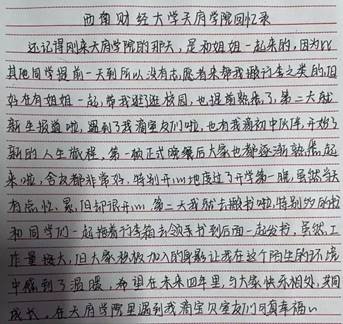 西南财经大学天府学院回忆录
还记得刚来天府学院的那天，是和姐姐一起来的，因为比
其他同学提前一天到所以没有志愿者来帮我搬行李之类的，但
好在有姐姐一起，带我逛逛校园，也提前熟悉了，第二天就
新生报道啦，遇到了我滴室友们啦，也有我滴初中伙伴，开始了
新的人生旅程，第一顿正式晚餐后大家也都逐渐熟悉起
来啦，舍友都非常好，特别开心地度过了开学第一晚，虽然当天
有点忙、累，但却很开心，第二天我就去搬书啦，特别的
和同学们一起拖着行李箱去领书到后面一起发书，虽然工
作量挺大，但大家积极加入的身影让我在这个陌生的环境
中感到了温暖，希望在未来四年里，与大家快乐相处，共同
成长，在天府学院里遇到我滴宝贝室友们可真幸福~